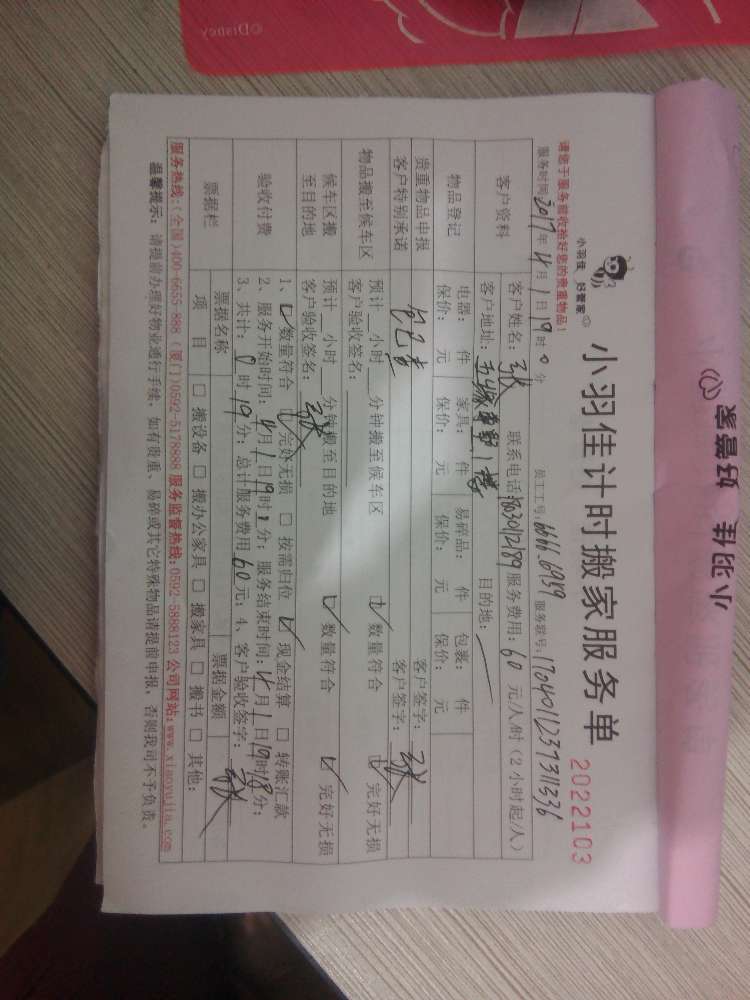 ©Disney
小羽佳 好管家
小羽佳 好管家
小羽佳计时搬家服务单
2022103
请您于服务前收拾好您的贵重物品！
服务时间：2017年4月1日19时0分 员工工号：6666.6959 服务联号：1704011237311336
客户资料
客户姓名：张 联系电话： 服务费用：60元/人/时（2小时起/人）
客户地址： 目的地：
物品登记
电器： 件 家具： 件 易碎品： 件 包裹： 件
保价： 元 保价： 元 保价： 元 保价： 元
贵重物品申报 客户签字：
客户特别承诺 客户签字：张
物品搬至候车区
预计 小时 分钟搬至候车区 ☑数量符合 ☑完好无损
客户验收签名：
候车区搬至目的地
预计 小时 分钟搬至目的地 ☑数量符合 ☑完好无损
客户验收签名：张
验收付费
1、☑数量符合 ☑完好无损 □按需归位 ☑现金结算 □转账汇款
2、服务开始时间：4月1日19时 分；服务结束时间：4月1日19时18分；
3、共计：0时19分；总计服务费用60元；4、客户验收签字：张
票据栏
票据名称 票据金额
项目 □搬设备 □搬办公家具 □搬家具 □搬书 □其他：
服务热线：(全国)400-6655-888 (厦门)0592-5178888 服务监督热线：0592-5888123 公司网站：www.xiaoyujia.com
温馨提示：请提前办理好物业通行手续，如有贵重、易碎或其它特殊物品请提前申报，否则我司不予负责。